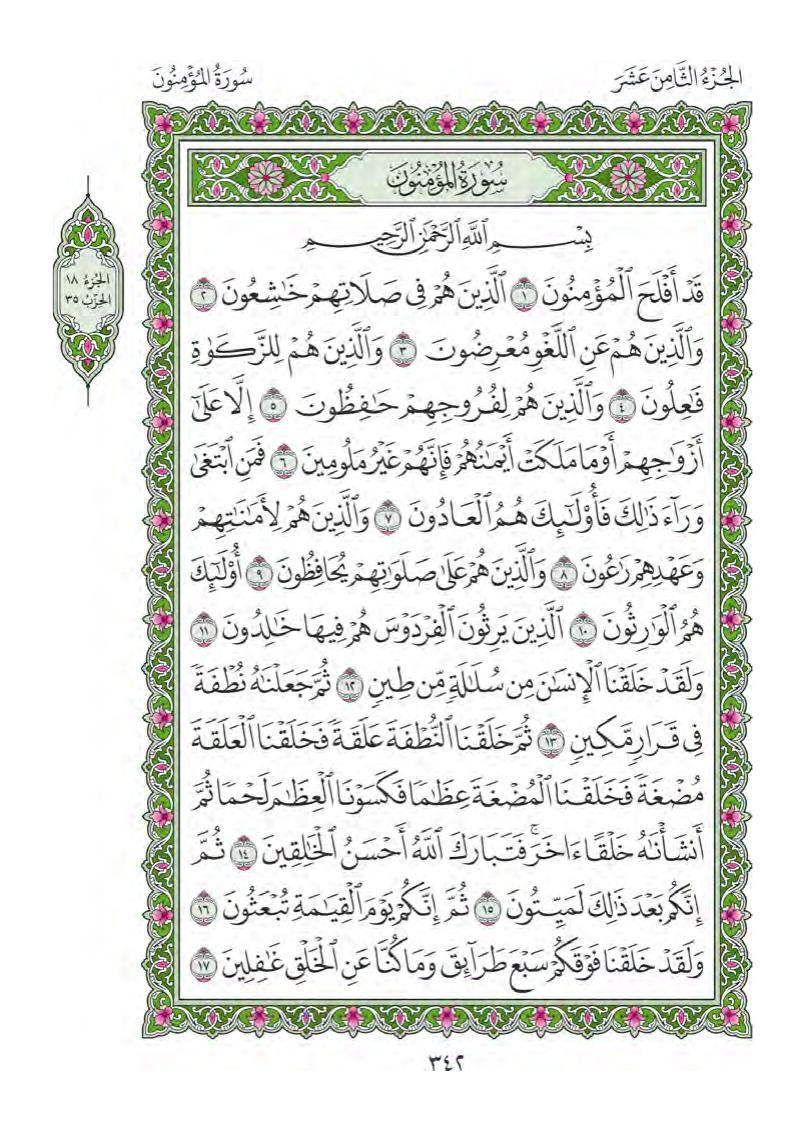 الجُزْءُ الثَّامِنَ عَشَرَ
سُورَةُ المُؤْمِنُونَ
الجُزءُ ١٨
الحِزْبُ ٣٥
سُورَةُ المُؤْمِنُونَ
بِسْمِ ٱللَّهِ ٱلرَّحْمَٰنِ ٱلرَّحِيمِ
قَدْ أَفْلَحَ ٱلْمُؤْمِنُونَ ١ ٱلَّذِينَ هُمْ فِى صَلَاتِهِمْ خَٰشِعُونَ ٢
وَٱلَّذِينَ هُمْ عَنِ ٱللَّغْوِ مُعْرِضُونَ ٣ وَٱلَّذِينَ هُمْ لِلزَّكَوٰةِ
فَٰعِلُونَ ٤ وَٱلَّذِينَ هُمْ لِفُرُوجِهِمْ حَٰفِظُونَ ٥ إِلَّا عَلَىٰٓ
أَزْوَٰجِهِمْ أَوْ مَا مَلَكَتْ أَيْمَٰنُهُمْ فَإِنَّهُمْ غَيْرُ مَلُومِينَ ٦ فَمَنِ ٱبْتَغَىٰ
وَرَآءَ ذَٰلِكَ فَأُو۟لَٰٓئِكَ هُمُ ٱلْعَادُونَ ٧ وَٱلَّذِينَ هُمْ لِأَمَٰنَٰتِهِمْ
وَعَهْدِهِمْ رَٰعُونَ ٨ وَٱلَّذِينَ هُمْ عَلَىٰ صَلَوَٰتِهِمْ يُحَافِظُونَ ٩ أُو۟لَٰٓئِكَ
هُمُ ٱلْوَٰرِثُونَ ١٠ ٱلَّذِينَ يَرِثُونَ ٱلْفِرْدَوْسَ هُمْ فِيهَا خَٰلِدُونَ ١١
وَلَقَدْ خَلَقْنَا ٱلْإِنسَٰنَ مِن سُلَٰلَةٍ مِّن طِينٍ ١٢ ثُمَّ جَعَلْنَٰهُ نُطْفَةً
فِى قَرَارٍ مَّكِينٍ ١٣ ثُمَّ خَلَقْنَا ٱلنُّطْفَةَ عَلَقَةً فَخَلَقْنَا ٱلْعَلَقَةَ
مُضْغَةً فَخَلَقْنَا ٱلْمُضْغَةَ عِظَٰمًا فَكَسَوْنَا ٱلْعِظَٰمَ لَحْمًا ثُمَّ
أَنشَأْنَٰهُ خَلْقًا ءَاخَرَ ۚ فَتَبَارَكَ ٱللَّهُ أَحْسَنُ ٱلْخَٰلِقِينَ ١٤ ثُمَّ
إِنَّكُم بَعْدَ ذَٰلِكَ لَمَيِّتُونَ ١٥ ثُمَّ إِنَّكُمْ يَوْمَ ٱلْقِيَٰمَةِ تُبْعَثُونَ ١٦
وَلَقَدْ خَلَقْنَا فَوْقَكُمْ سَبْعَ طَرَآئِقَ وَمَا كُنَّا عَنِ ٱلْخَلْقِ غَٰفِلِينَ ١٧
٣٤٢